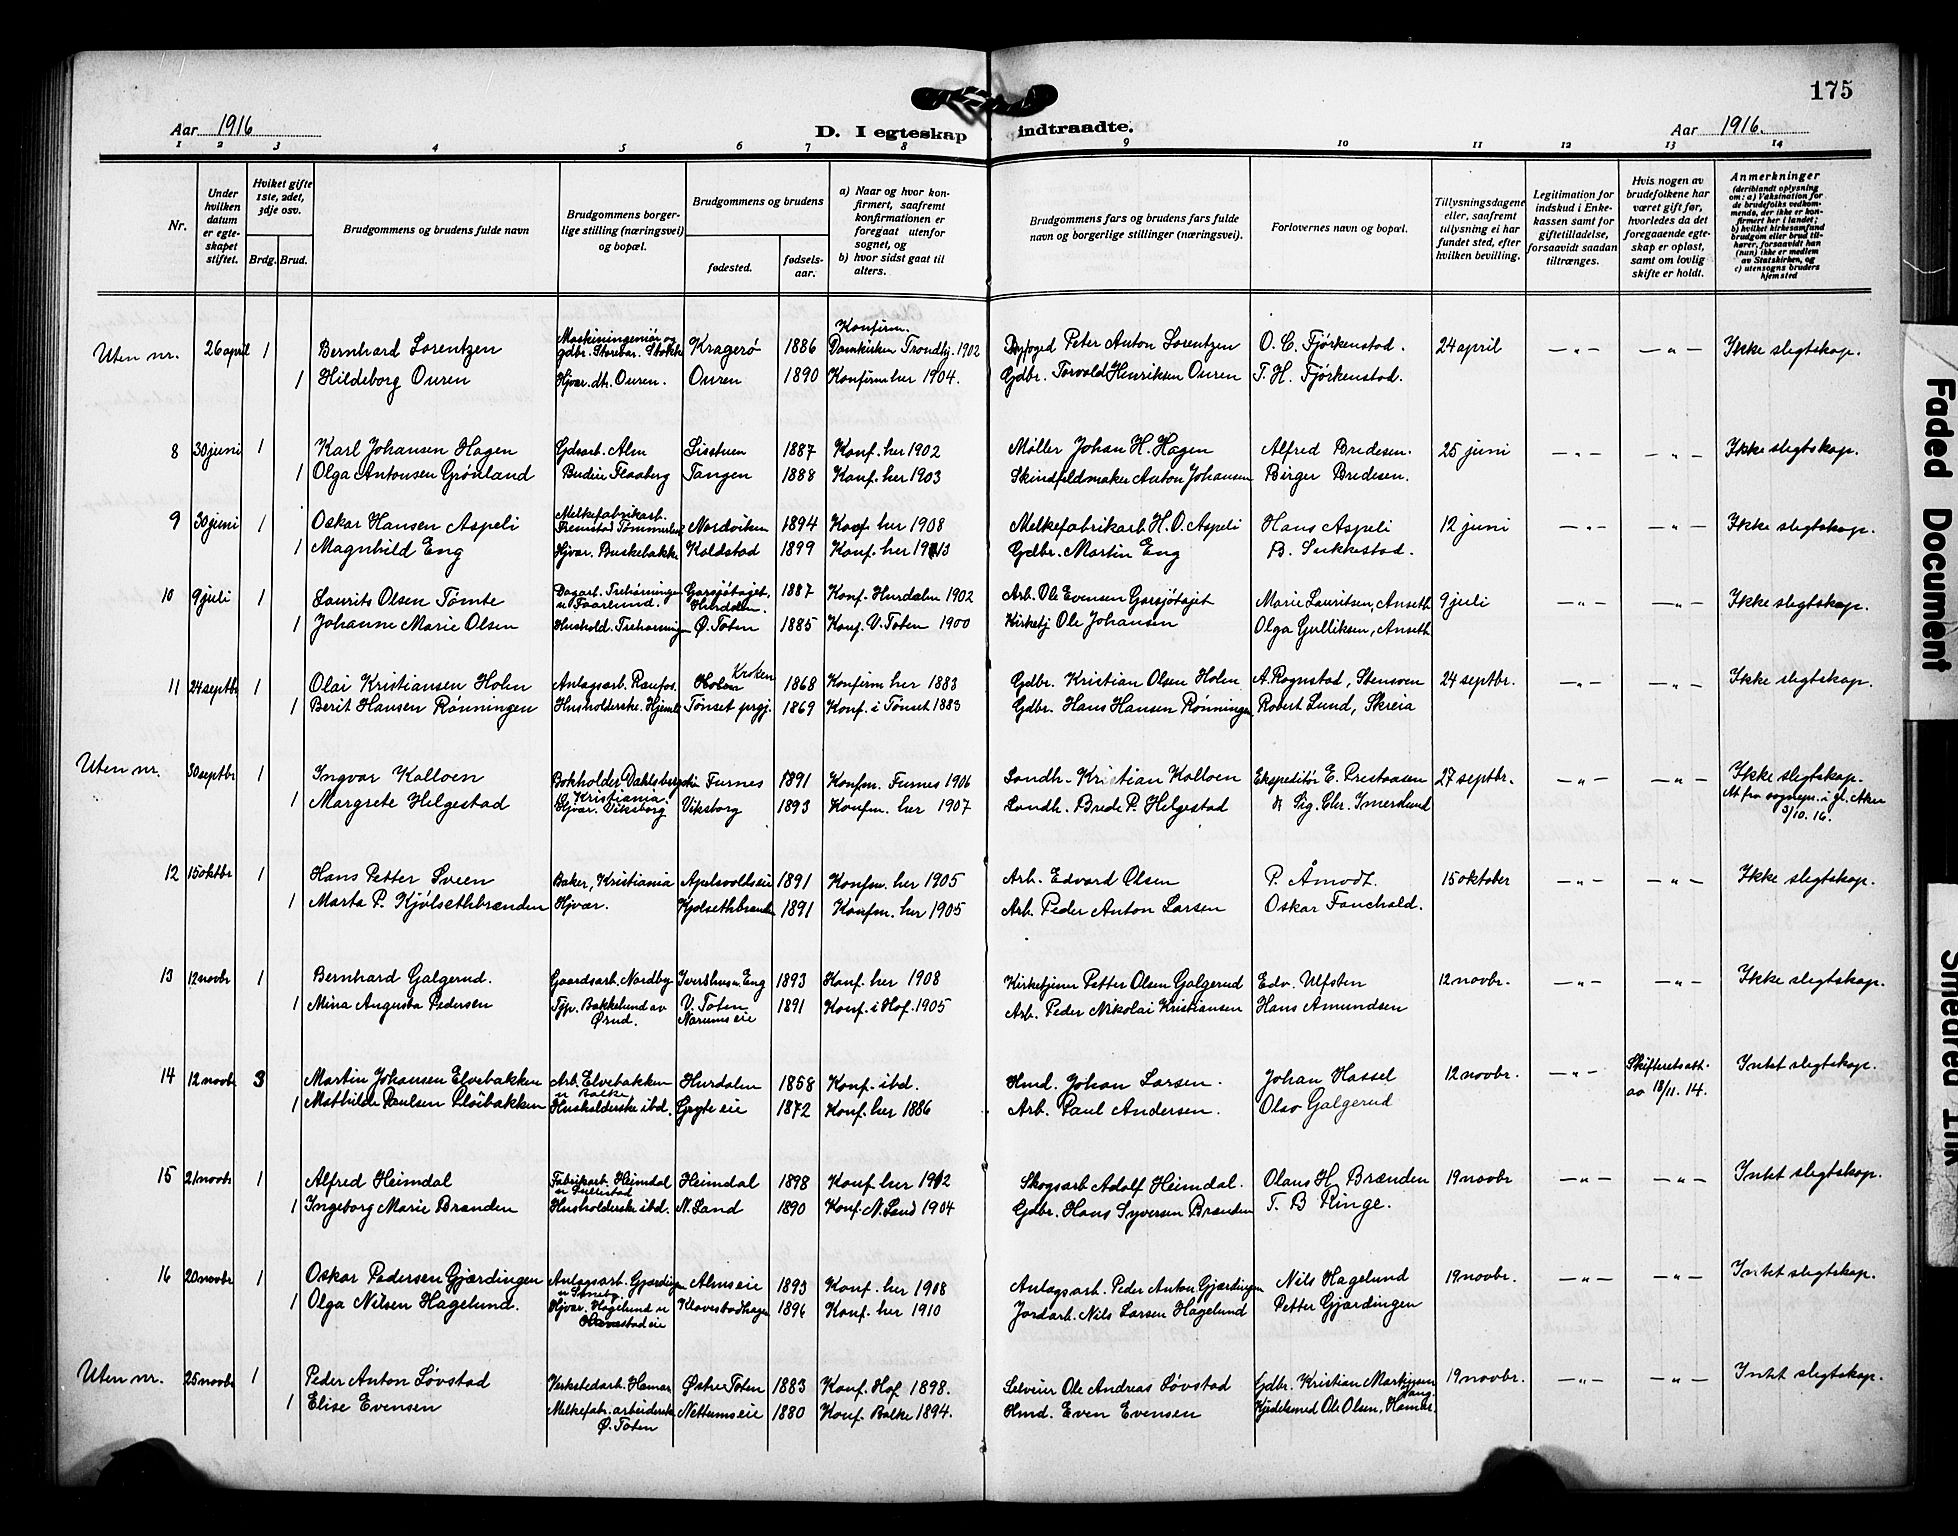 175
Aar 1916
D. I egteskap indtraadte.
Aar 1916.
1 2 3 4 5 6 7 8 9 10 11 12 13 14
Nr.
Under hvilken datum er egteskapet stiftet.
Hvilket gifte 1ste, 2det, 3dje osv.
Brdg. Brud.
Brudgommens og brudens fulde navn
Brudgommens borgerlige stilling (næringsvei) og bopæl.
Brudgommens og brudens
fødested.
fødselsaar.
a) Naar og hvor konfirmert, saafremt konfirmationen er foregaat utenfor sognet, og
b) hvor sidst gaat til alters.
Brudgommens fars og brudens fars fulde navn og borgerlige stillinger (næringsvei).
Forlovernes navn og bopæl.
Tillysningsdagene eller, saafremt tillysning ei har fundet sted, efter hvilken bevilling.
Legitimation for indskud i Enkekassen samt for giftetilladelse, forsaavidt saadan tiltrænges.
Hvis nogen av brudefolkene har været gift før, hvorledes da det foregaaende egteskap er opløst, samt om lovlig skifte er holdt.
Anmerkninger
(deriblandt oplysning om: a) Vaksination for de brudefolks vedkommende, der ikke er konfirmert her i landet; b) hvilket kirkesamfund brudgom eller brud tilhører, forsaavidt han (hun) ikke er medlem av Statskirken, og c) utensogns bruders hjemsted
Uten nr. 26 april 1 Bernhard Lorentzen Maskiningeniør og gdbr. Storebar. Stokke Kragerø 1886 Konfirm. Domkirken Trondhj. 1902 Peter Anton Lorentzen O. C. Fjørkenstad. 24 april — „ — — „ — Ikke slegtskap.
1 Hildeborg Ouren Hjvær. dt. Ouren. Ouren 1890 Konfirm her 1904. Gdbr. Torvald Henriksen Ouren T. H. Fjørkenstad.
8 30 juni 1 Karl Johansen Hagen Gdsarb. Alm Sisstuen 1887 Konf. her 1902 Møller Johan H. Hagen Alfred Bredesen. 25 juni — „ — — „ — Ikke slegtskap.
1 Olga Antonsen Grønland Budeie Flaaberg Tangen 1888 Konf. her 1903 Skindfeldmaker Anton Johansen Birger Bredesen.
9 30 juni 1 Oskar Hansen Aspeli Melkefabrikarb. Fremstad Nordviken 1894 Konf her 1908 Melkefabrikarb. H. O. Aspeli Hans Aspeli 12 juni — „ — — „ — Ikke slegtskap.
1 Magnhild Eng Hjvær. Buskebakke Koldstad 1899 Konf. her 1913 Gdbr. Martin Eng B. Sukkestad.
10 9 juli 1 Laurits Olsen Tømte Dagarb. Trehørningen u Paarlund. Garsjøtajet. Hurdalen. 1887 Konf. Hurdalen 1902 Arb. Ole Evensen Garsjøtajet Marie Lauritsen, Anseth 9 juli — „ — — „ — Ikke slegtskap.
1 Johanne Marie Olsen Hushold. Trehørningen Ø. Toten 1885 Konf. V. Toten 1900 Kirketj Ole Johansen Olga Gulliksen, Anseth
11 24 septbr 1 Olai Kristiansen Holm Anlagsarb. Raufos. Kroken 1868 Konfirm her 1883 Gdbr. Kristian Olsen Holm A. Rognstad, Stensven 24 septbr. — „ — — „ — Ikke slegtskap.
1 Berit Hansen Rønningen Husholderske. Hjemli Tønset prgj. 1869 Konf. i Tønset 1883 Gdbr. Hans Hansen Rønningen Robert Lund, Skreia
Uten nr. 30 septbr 1 Ingvar Kolloen Bokholder Kristiania. Furnes 1891 Konfm. Furnes 1906 Landh. Kristian Kolloen Ekspeditør E. Prestaasen 27 septbr. — „ — — „ — Ikke slegtskap.
1 Margrete Helgestad Hjvær. Viksborg Viksborg 1893 Konfm. her 1907 Landh. Brede P. Helgestad Sig. Chr. Imerslund At. fra sognepr. i gl. Aker 3/10. 16.
12 15 oktbr 1 Hans Petter Sveen Baker, Kristiania Apelsvoldseie 1891 Konfm. her 1905 Arb. Edvard Olsen P. Åmodt. 15 oktober — „ — — „ — Ikke slegtskap.
1 Marta P. Kjølsethbrænden Hjvær. Kjølsethbrænden 1891 Konfm. her 1905 Arb. Peder Anton Larsen Oskar Fauchald.
13 12 novbr 1 Bernhard Galgerud. Gaardsarb. Nordby Ivershus u. Eng 1893 Konf. her 1908 Kirketjener Petter Olsen Galgerud Edv. Ulfsten 12 novbr. — „ — — „ — Ikke slegtskap.
1 Mina Augusta Pedersen Tjp. Bakkelund av Ørud. V. Toten Narumseie 1891 Konf. i Hof. 1905 Arb. Peder Nikolai Kristiansen Hans Amundsen
14 12 novbr 3 Martin Johansen Elvebakken Arb. Elvebakken u Balke Hurdalen 1858 Konf. ibd. Hmd. Johan Larsen. Johan Hassel 12 novbr. — „ — Skifteretsatt. av 18/11. 14. Intet slegtskap.
1 Mathilde Paulsen Pløibakken Husholderske ibd. Grythe eie 1872 Konf. her 1886 Arb. Paul Andersen. Olav Galgerud
15 21 novbr 1 Alfred Heimdal Fabrikarb. Heimdal u Sullestad Heimdal 1898 Konf her 1912 Skogsarb Adolf Heimdal. Olaus H. Brænden 19 novbr — „ — — „ — Intet slegtskap.
1 Ingeborg Marie Brænden Husholderske ibd. N. Land 1890 Konf. N. Land 1904 Gdbr. Hans Syversen Brænden T. B Ringe.
16 20 novbr 1 Oskar Pedersen Gjærdingen Anlagsarb. Gjærdingen Almseie 1893 Konf. her 1908 Anlagsarb. Peder Anton Gjærdingen Nils Hagelund 19 novbr. — „ — — „ — Intet slegtskap.
1 Olga Nilsen Hagelund. Hjvær. Hagelund u Klavestadhagen 1896 Konf. her 1910 Jordarb. Nils Larsen Hagelund Petter Gjærdingen
Uten nr. 25 novbr 1 Peder Anton Løvstad Verkstedarb. Hamar Østre Toten 1883 Konf. Hof 1898. Selveier Ole Andreas Løvstad Gdbr. Kristian Martinsen 19 novbr. — „ — — „ — Intet slegtskap.
1 Elise Evensen Melkefabr. arbeiderske Ø. Toten Nettumseie 1880 Konf. Balke 1894. Hmd. Even Evensen Kjedelsmed Ole Olsen, Hamar.
Faded Document
Smeared Ink